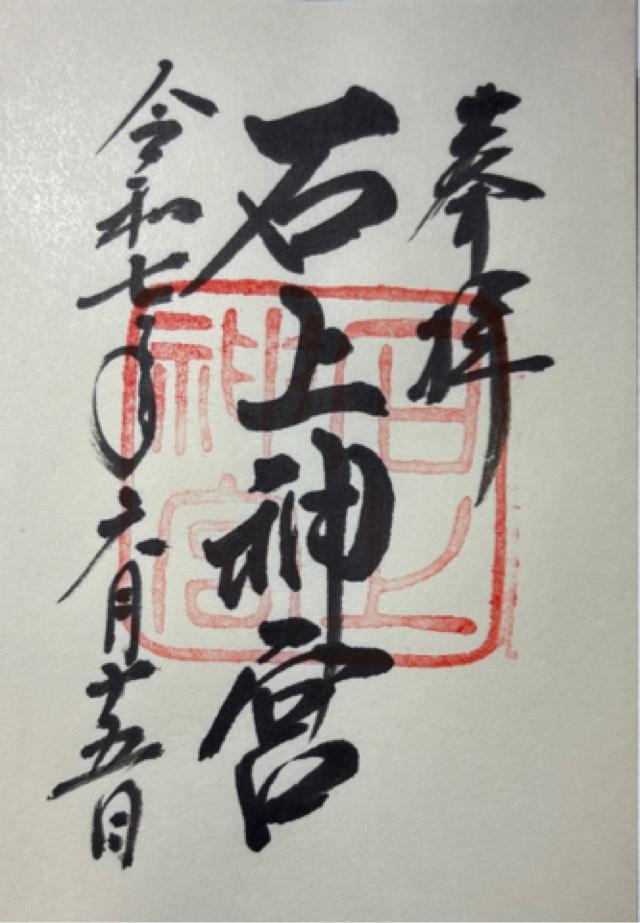 奉拝
石上神宮
令和七年六月十五日
石上
神宮